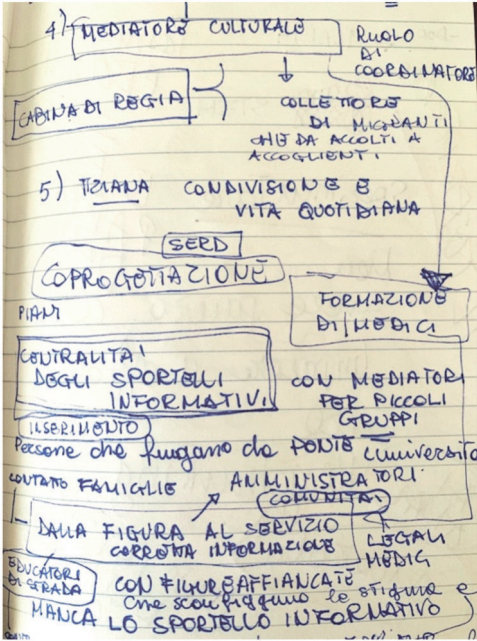 4) MEDIATORE CULTURALE
RUOLO
DI
COORDINATORE
CABINA DI REGIA
COLLETTORE
DI MIGRANTI
CHE DA ACCOLTI A
ACCOGLIENTI
5) TIZIANA CONDIVISIONE E
VITA QUOTIDIANA
SERD
COPROGETTAZIONE
FORMAZIONE
DI/MEDICI
PIANI
CENTRALITA'
DEGLI SPORTELLI
INFORMATIVI
CON MEDIATORI
PER PICCOLI
GRUPPI
INSERIMENTO
Persone che fungano da PONTE università
CONTATTO FAMIGLIE
AMMINISTRATORI
COMUNITA'
DALLA FIGURA AL SERVIZIO
CORRETTA INFORMAZIONE
LEGALI
MEDICI
EDUCATORI
DI STRADA
CON FIGURE AFFIANCATE
che sconfiggano lo stigma e
MANCA LO SPORTELLO INFORMATIVO